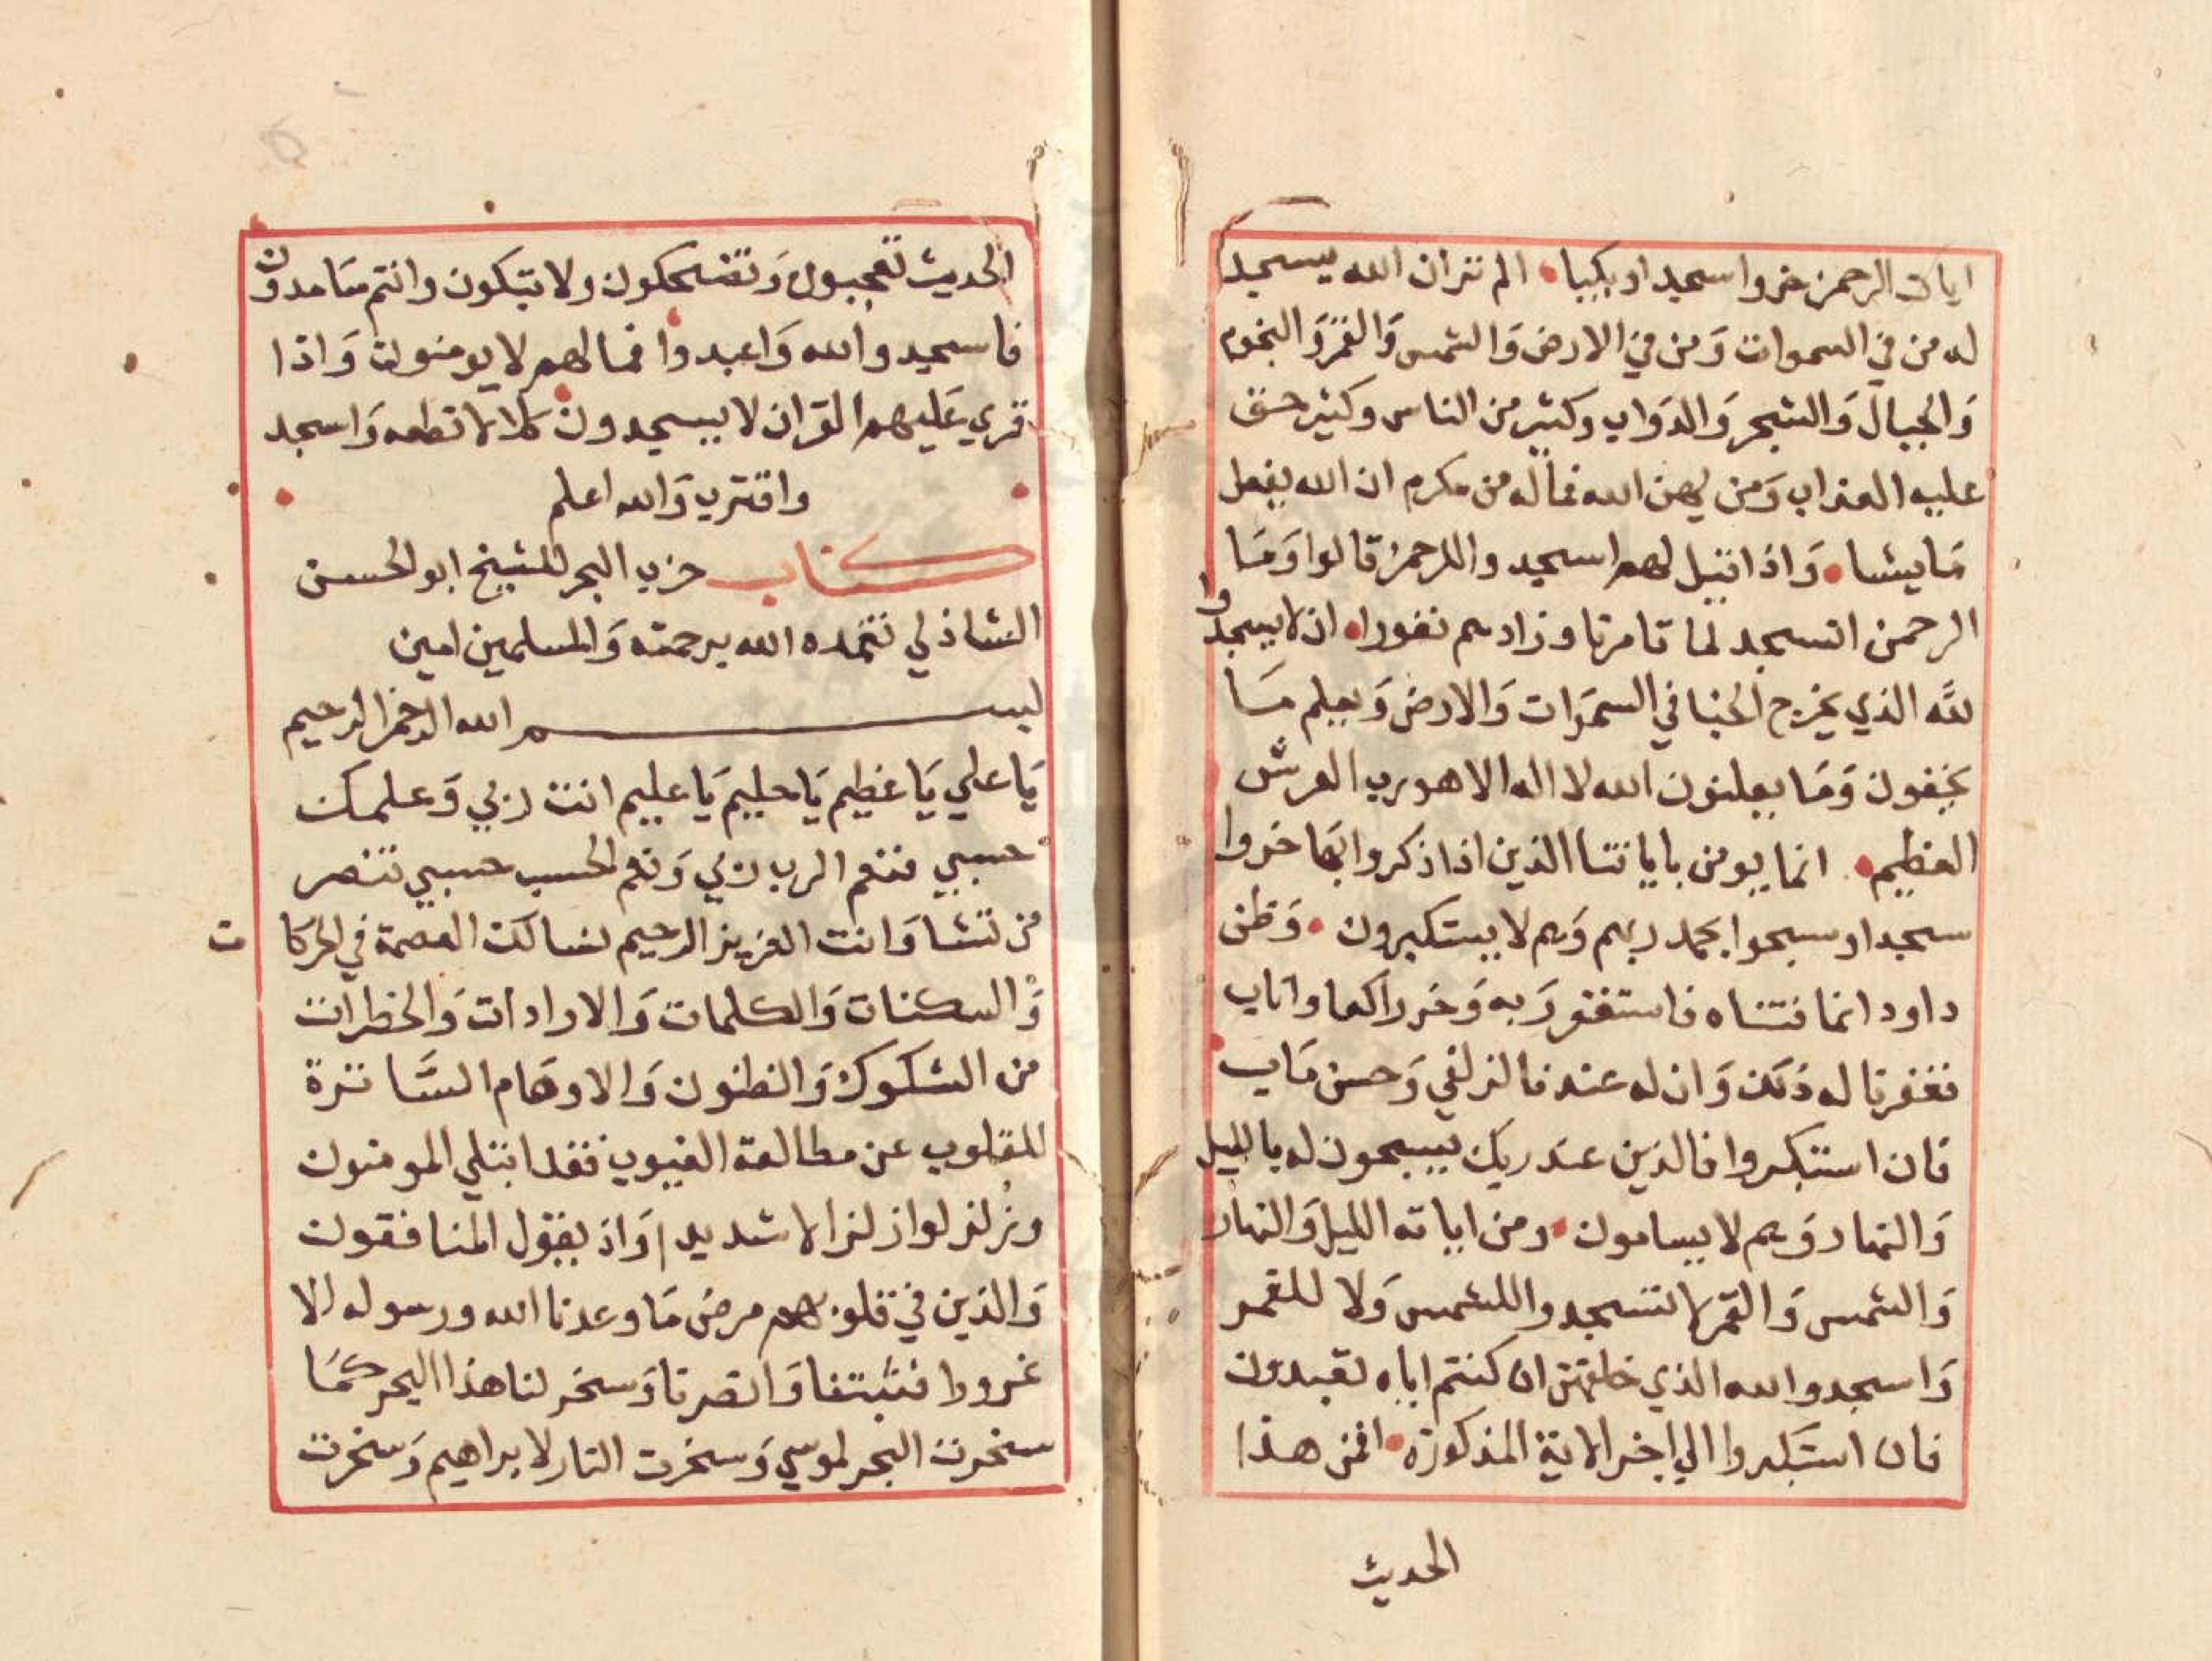 ايات الرحمن خروا سجدا وبكيا الم تر ان الله يسجد
له من في السموات وَمن في الارض وَالشمس وَالقمر وَالنجوم
وَالجبال وَالشجر وَالدوَاب وكثير من الناس وكثير حق
عليه العذاب وَمن يهن الله فما له من مكرم ان الله يفعل
مَا يشا وَاذا قيل لهم اسجدوا للرحمن قالوا وَمَا
الرحمن انسجد لما تامرنا وزادهم نفورا ان لا يسجدوا
للَّه الذي يخرج الخبا في السمَوات وَالارض وَيعلم مَا
يخفون وَمَا يعلنون الله لا اله الا هو رب العرش
العظيم انما يومن باياتنا الذين اذا ذكروا بها خروا
سجدا وسبحوا بحمد ربهم وَهم لا يستكبرون وَظن
داود انما فتناه فاستغفر رَبه وَخر راكعا واناب
فغفرنا له ذلك وَان له عندنا لزلفي وَحسن مَاب
فان استكبروا فالذين عند ربك يسبحون له بالليل
وَالنهار وَهم لا يسامون ومن اياته الليل وَالنهار
وَالشمس وَالقمر لا تسجدوا للشمس وَلا للقمر
وَاسجدوا لله الذي خلقهن ان كنتم اياه تعبدون
فان استكبروا الي اخر الاية المذكورة افمن هذا
الحديث
الحديث تعجبون وَتضحكون ولا تبكون وانتم سَامدون
فاسجدوا لله وَاعبدوا فما لهم لا يومنون وَاذا
قري عَليهم القران لا يسجدون كلا لا تطعه وَاسجد
واقترب وَالله اعلم
كتاب حزب البحر للشيخ ابو الحسن
الشاذلي تغمده الله برحمته وَالمسلمين امين
بسم الله الرحمن الرحيم
يَا علي يَا عظيم يَا حليم يَا عليم انت ربي وَعلمك
حسبي فنعم الرب ربي وَنعم الحسب حسبي تنصر
من تشا وَانت العزيز الرحيم نسالك العصمة في الحركا ت
وَالسكنات وَالكلمات وَالارادات وَالخطرات
من الشكوك وَالظنون وَالاوهَام السَّاترة
للقلوب عن مطالعة الغيوب فقد ابتلي المومنون
وزلزلوا زلزالا شديدا وَاذ يقول المنافقون
وَالذين في قلوبهم مرض مَا وعدنا الله ورسوله الا
غرورا فثبتنا وَانصرنا وَسخر لنا هذا البحر كمَا
سخرت البحر لموسي وَسخرت النار لابراهيم وَسخرت